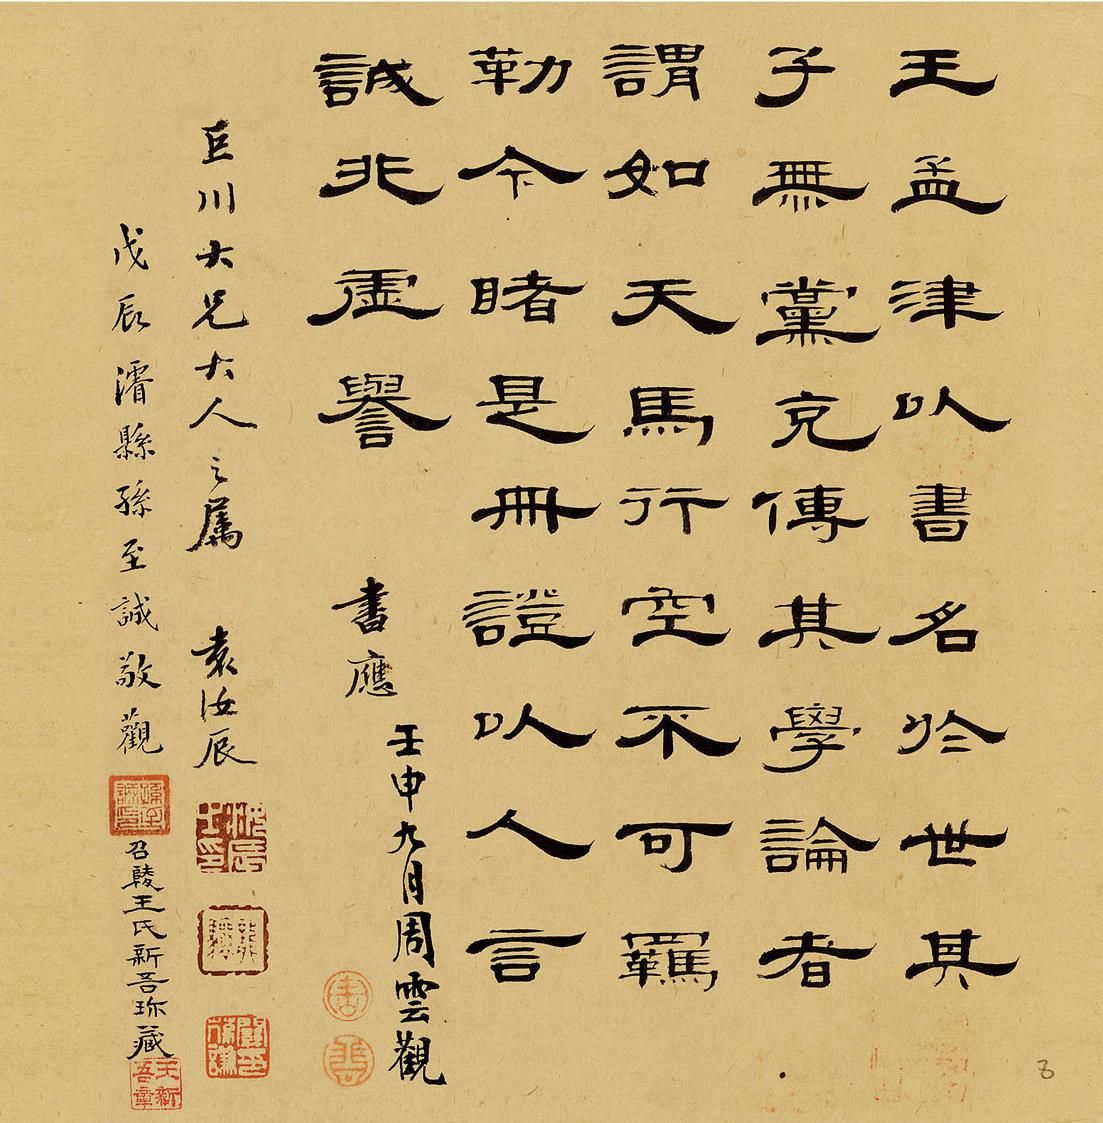 王孟津以書名於世其
子無黨克傳其學論者
謂如天馬行空不可羈
勒今睹是冊證以人言
誠非虛譽
書應
壬申九月周雲觀
巨川大兄大人之屬 袁汝辰
戊辰濬縣孫至誠敬觀
召陵王氏新吾珎藏
王新吾章
8